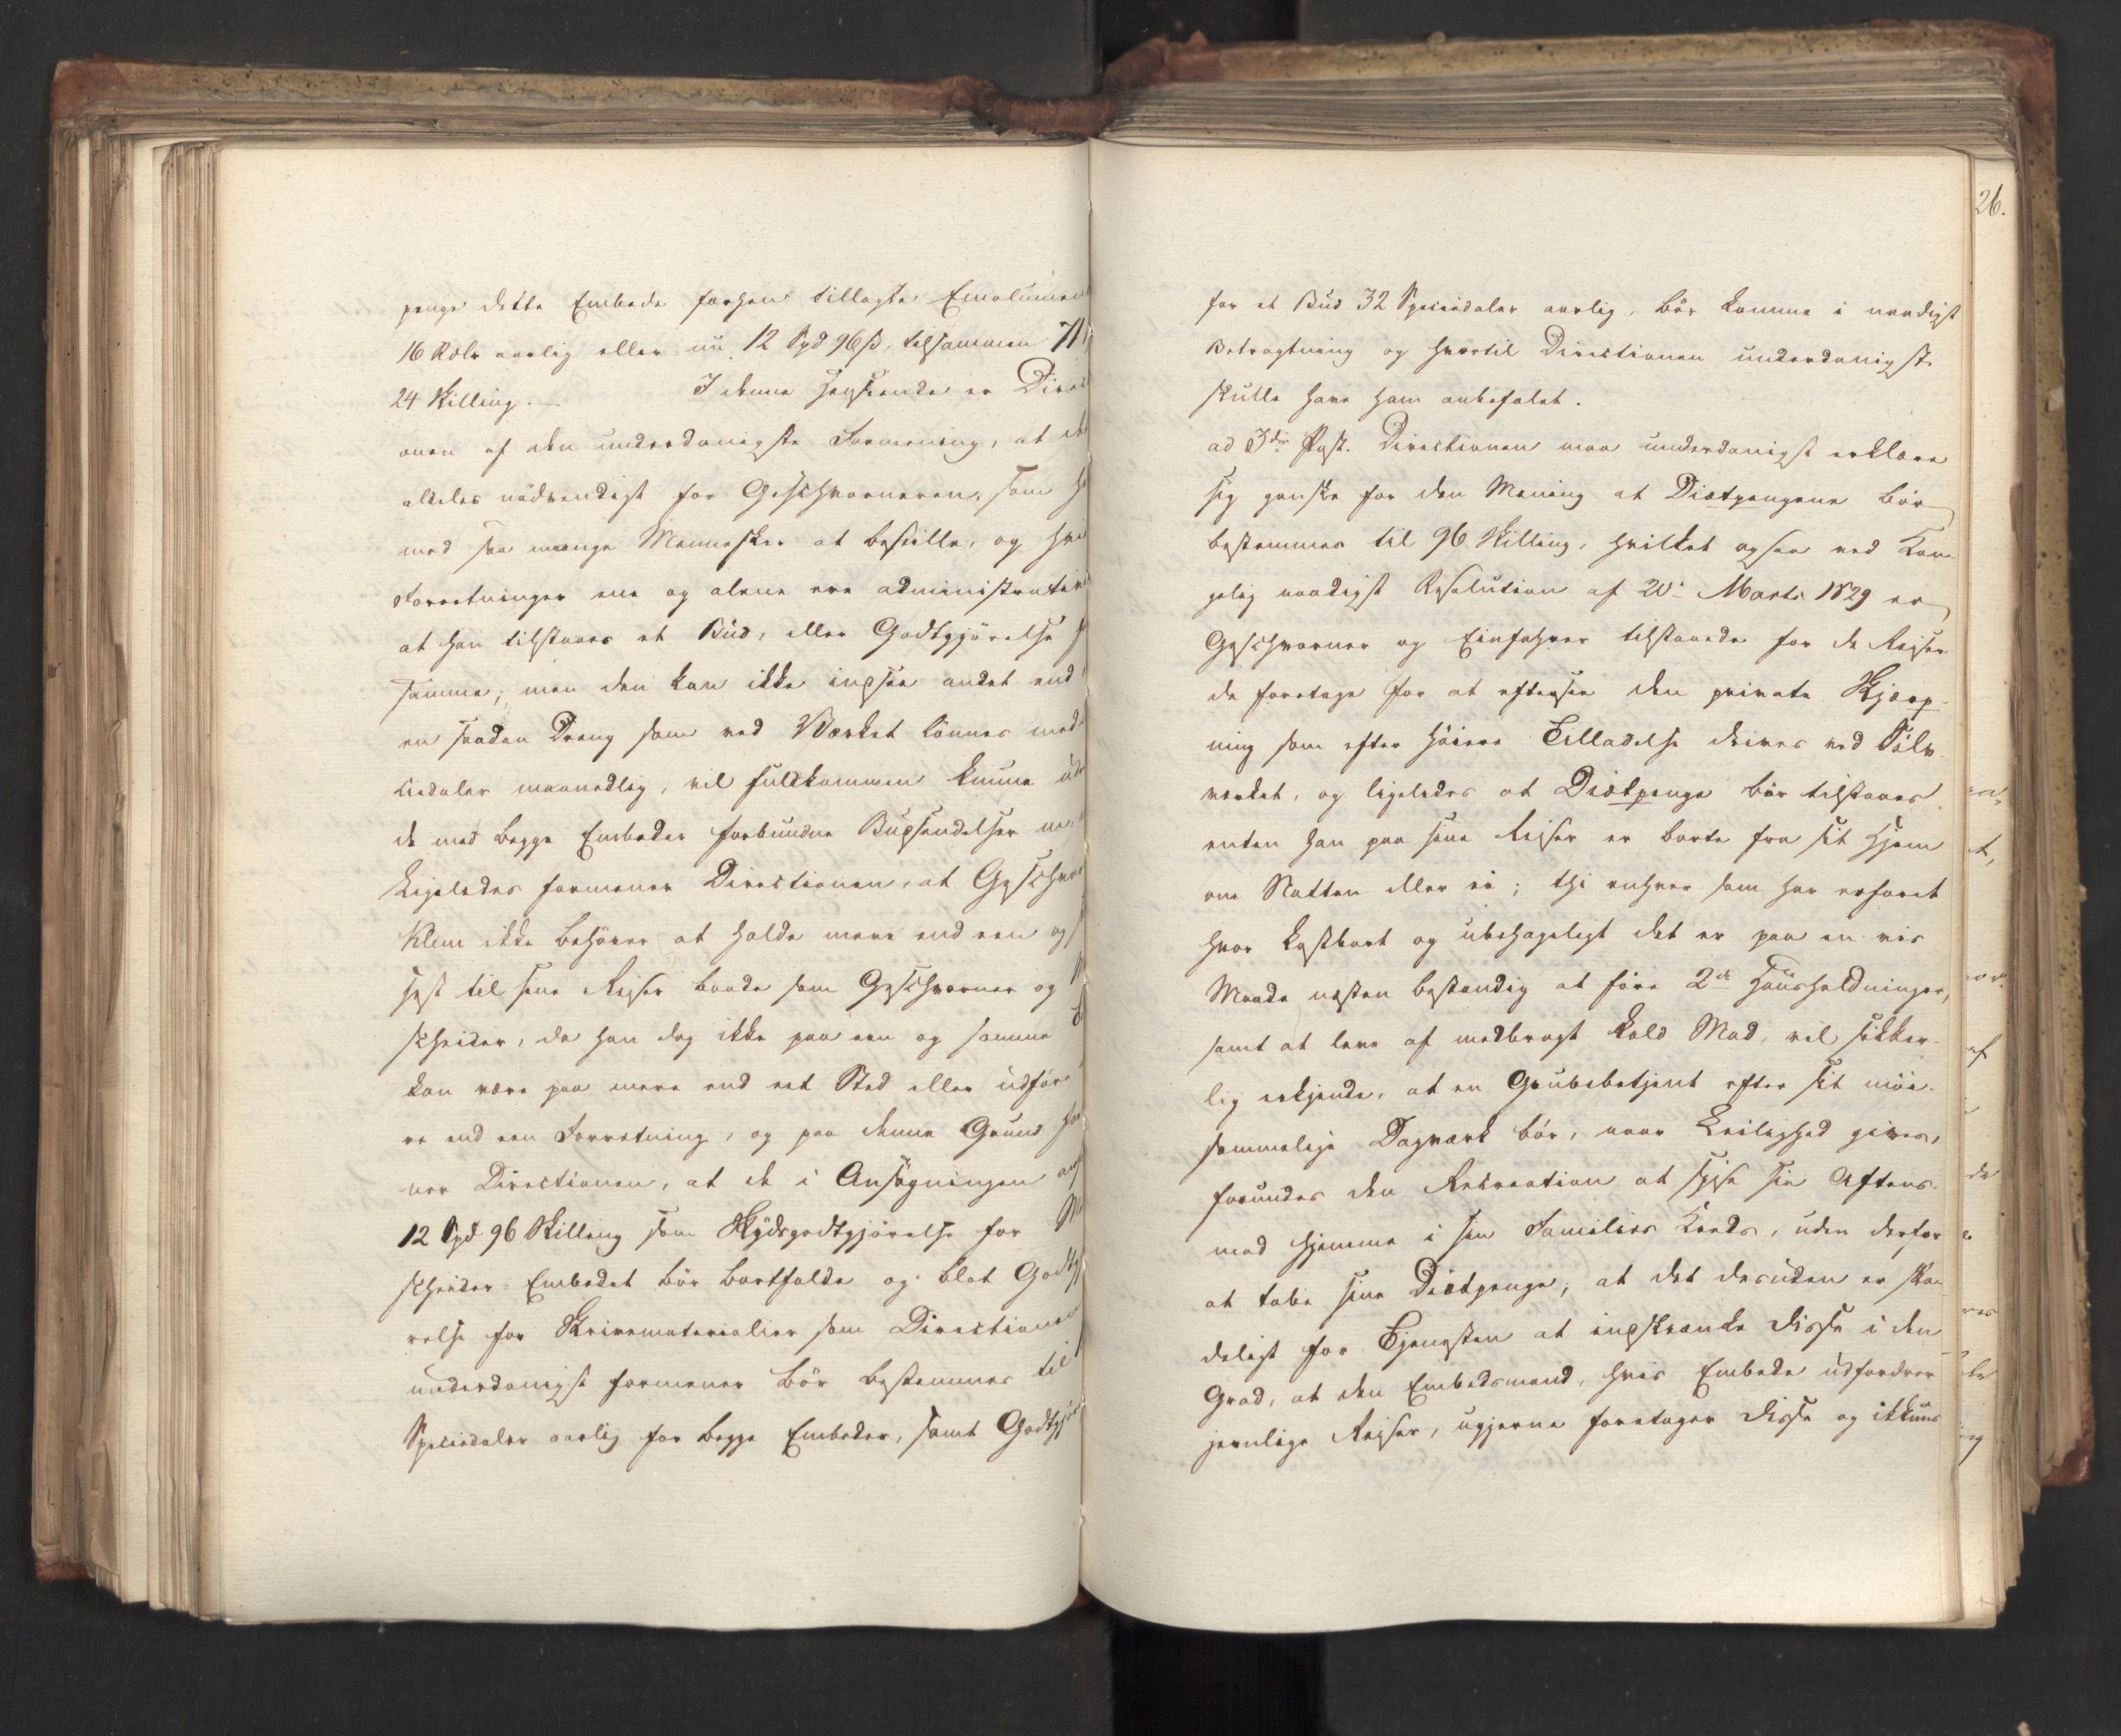 penge dette Embede forhen tillagte Emolumen
16 Rdlr aarlig eller nu 12 Spd 96 ß, tilsammen 71
24 Skilling. — I denne Henseende er Direc
onen af den underdanigste Formening, at det
aldeles nödvendigt for Geschwarneren, som ha
med saa mange Mennesker at bestille, og hvis
Forretninger ene og alene ere administrative
at han tilstaaes et Bud, eller Godtgjörelse f
samme; men den kan ikke indsee andet end
en saadan Dreng som ved Værket lönnes med
ciedaler maanedlig, vil fuldkommen kunne ud
de med begge Embeder forbundne Budsendelser
Ligeledes formener Directionen, at Geschwor
Klem ikke behöver at holde mere end een og
Hest til sine Reiser baade som Geschworner og M
scheider, da han dog ikke paa een og samme T
kan være paa mere end eet Sted eller udföre
re end een Forretning, og paa denne Grund for
ner Directionen, at de i Ansögningen anf
12 Spd 96 Skilling som Skydsgodtgjörelse for Ma
scheider-Embedet bör bortfalde og blot Godtgj
relse for Skrivematerialier som Directionen
underdanigst formener bör bestemmes til
Speciedaler aarlig for begge Embeder, samt Godtgjör
26.
for et Bud 32 Speciedaler aarlig, bör komme i naadigst
Betragtning og hvortil Directionen underdanigst
skulle have ham anbefalet.
ad 3die Post. Directionen maa underdanigst erklære
sig ganske for den Mening at Diætpengene bör
bestemmes til 96 Skilling, hvilket ogsaa ved Kon
gelig naadigst Resolution af 20 Marts 1829 er
Geschworner og Einfahrer tilstaaede for de Reiser
de foretage for at eftersee den private Skjærp-
ning som efter höiere Tilladelse drives ved Sölv
værket, og ligeledes at Diætpenge bör tilstaaes
enten han paa sine Reiser er borte fra sit Hjem
om Natten eller ei; thi enhver som har erfaret
hvor kostbart og ubehageligt det er paa en vis
Maade næsten bestandig at före 2de Huusholdninger,
samt at leve af medbragt kold Mad, vil sikker-
lig erkjende, at en Grubebetjent efter sit möi-
sommelige Dagværk bör, naar Leilighed gives,
forundes den Recreation at spise sin Aftens-
mad hjemme i sin Families Kreds, uden derfor
at tabe sine Diætpenge; at det desuden er ska-
deligt for Tjenesten at indskrænke disse i den
Grad, at den Embedsmand, hvis Embede udfordrer
jevnlige Reiser, ugjerne foretager disse og ikkuns